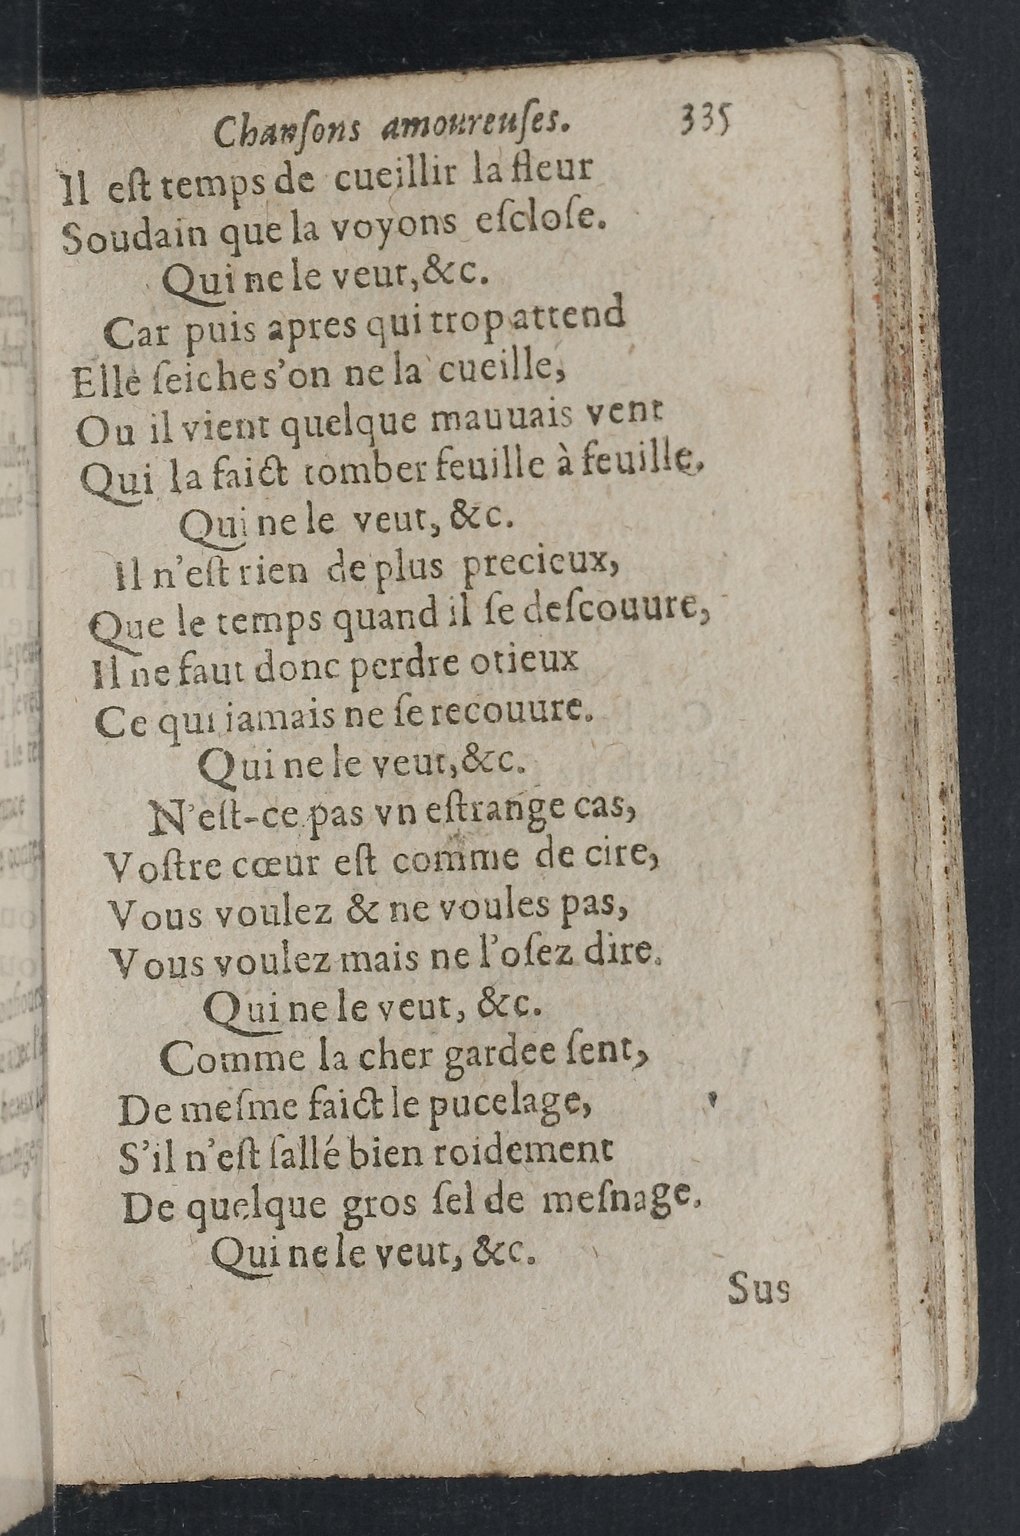 Chanſons amoureuſes. 335
Il eſt temps de cueillir la fleur
Soudain que la voyons eſcloſe.
Qui ne le veut, &c.
Car puis apres qui trop attend
Elle ſeiche s'on ne la cueille,
Ou il vient quelque mauuais vent
Qui la faict tomber feuille à feuille.
Qui ne le veut, &c.
Il n'eſt rien de plus precieux,
Que le temps quand il ſe deſcouure,
Il ne faut donc perdre otieux
Ce qui iamais ne ſe recouure.
Qui ne le veut, &c.
N'eſt-ce pas vn eſtrange cas,
Voſtre cœur eſt comme de cire,
Vous voulez & ne voules pas,
Vous voulez mais ne l'oſez dire.
Qui ne le veut, &c.
Comme la cher gardee ſent,
De meſme faict le pucelage,
S'il n'eſt ſallé bien roidement
De quelque gros ſel de meſnage.
Qui ne le veut, &c.
Sus